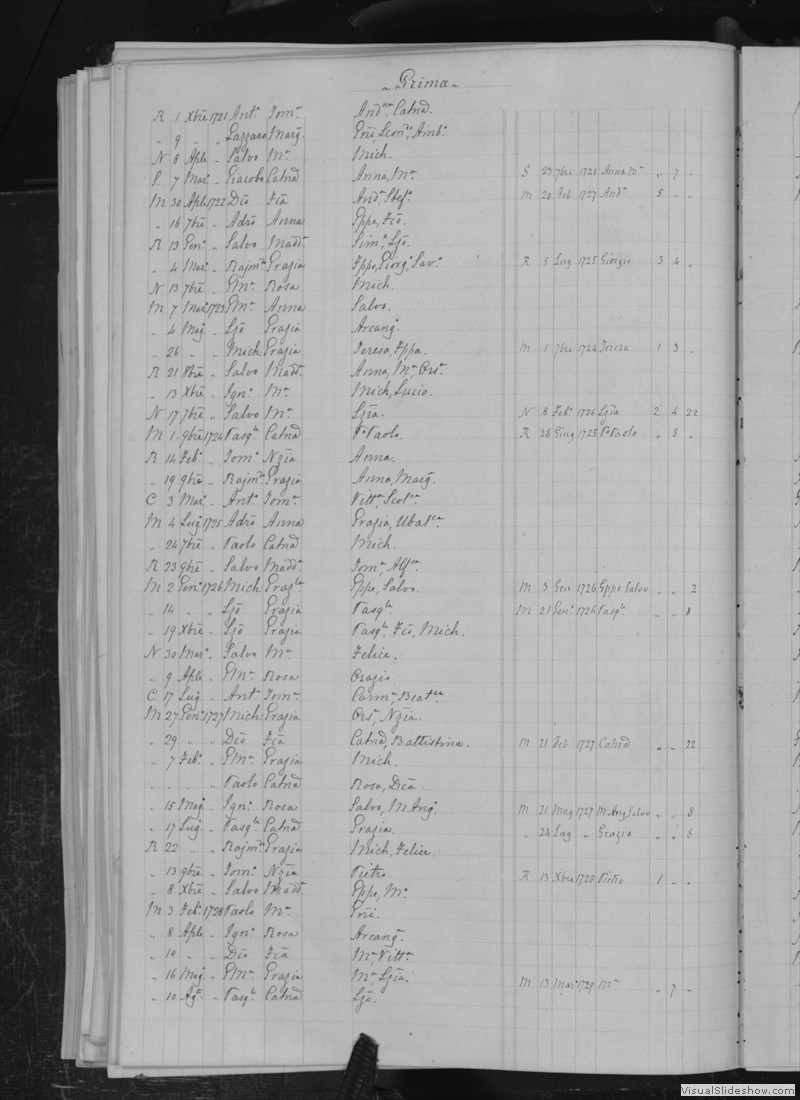 Prima
R 1 Xbre 1721 Ant.o Dom.a And.na Catnd.
" 9 " " Lazzaro Marg. Gñi, Leon.o, Amb.o
N 8 Aple " Salvo M.a Mich.
S. 7 Mar.o " Giacobo Catnd Anna, M.a S 23 7bre 1721 Anna M.a " 7 "
M 30 Aple 1722 Dco Fca And.a Stef.o M 20 Feb 1727 And.a 5 " "
" 16 7bre " Adro Anna Gppe, Fco.
R 13 Gen.o " Salvo Madd.a Sim.e, Ljo.
" 4 Mar.o " Rajm.do Grazia Fppo, Giorg.o Sav.o R 5 Lug 1725 Giorgio 3 4 "
N 13 7bre " G.M.a Rosa Mich.
M 7 Mar.o 1723 G.M.a Anna Salvo.
" 4 Mag. " Ljo Grazia Arcang.
" 26 " " Mich. Grazia Teresa, Fppa. M 1 7bre 1724 Teresa 1 3 "
R 21 8bre " Salvo Madd.a Anna, M.a Ors.a
" 13 Xbre " Ign.o M.a Mich, Lucio.
N 17 7bre " Salvo M.a Ljia. N 8 Feb.o 1726 Ljia 2 4 22
M 1 9bre 1724 Pasq.le Catnd P.o Paolo. R 28 Giug 1725 P.o Paolo " 8 "
R 14 Feb.o " Dom.o Nzia Anna.
" 19 9bre " Rajm.do Grazia Anna, Marg.
C 3 Mar.o " Ant.o Dom.a Vitt.a Scol.ca
M 4 Lug 1725 Adro Anna Grazia, Ubal.ca
" 24 7bre " Paolo Catnd Mich.
R 23 9bre " Salvo Madd.a Dom.a, Alf.
M 2 Gen.o 1726 Mich. Graz.la Gppe, Salvo. M 3 Gen 1726 Gppe Salvo " " 2
" 14 " " Ljo Grazia Pasq.le M 21 Gen.o 1726 Pasq.le " " 8
" 19 Xbre " Ljo Grazia Pasq.le, Fco, Mich.
N 30 Mar.o " Salvo M.a Felice.
" 9 Aple " G.M.a Rosa Orazio
C 17 Lug " Ant.o Dom.a Carm.a Beat.ce
M 27 Gen.o 1727 Mich. Grazia Ors.a, Nzia.
" 29 " " Dco Fca Catnd, Battistina. M 21 Feb 1727 Catnd " " 22
" 7 Feb.o " G.M.a Grazia Mich.
" " " " Paolo Catnd Rosa, Dca.
" 15 Mag. " Ign.o Rosa Salvo, M. Ang. M 21 Mag 1727 M. Ang Salvo " " 8
" 17 Lug. " Pasq.le Catnd Grazia. " 24 Lug " Grazia " " 8
R 22 " " Rajm.do Grazia Mich, Felice.
" 13 9bre " Dom.o Nzia Pietro. R 13 Xbre 1728 Pietro 1 " "
" 8 Xbre " Salvo Madd.a Gppe, M.a
M 3 Feb.o 1728 Paolo M.a Gñi.
" 8 Aple " Ign.o Rosa Arcang.a
" 10 " " Dco Fca M.a Vitt.a
" 16 Mag. " G.M.a Grazia M.a Ljia.
" 10 Ag.o " Pasq.le Catnd Ljo. M 13 Mar.o 1729 M.a " 7 "
VisualSlideshow.com